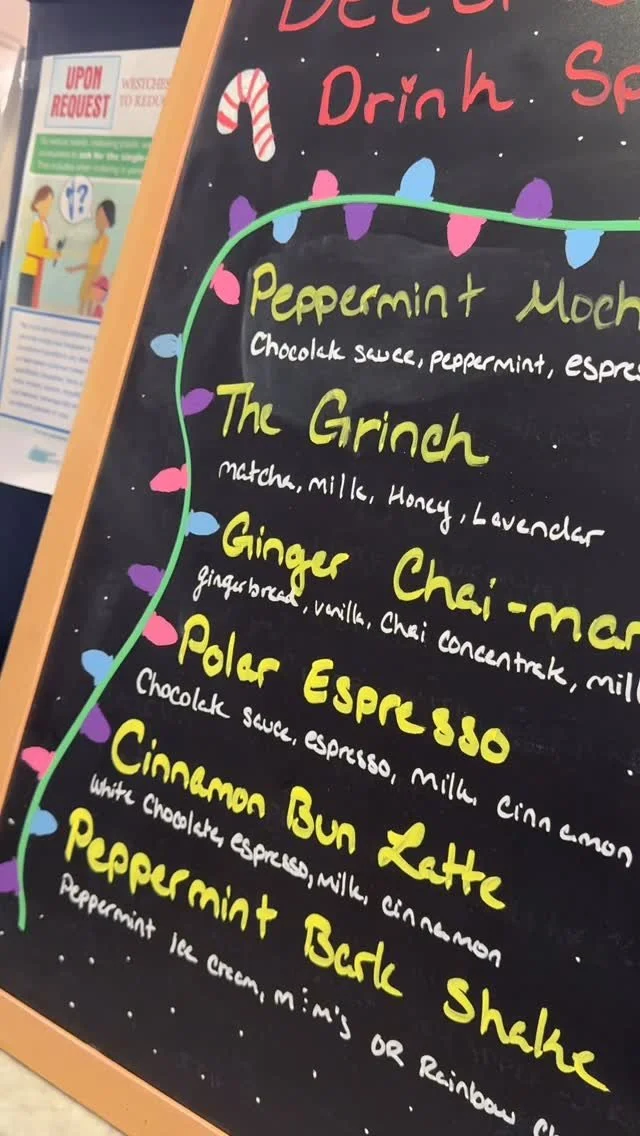 UPON
REQUEST
WESTCHES
TO REDU
ask for the
Dece
Drink Sp
Peppermint Moch
Chocolate sauce, peppermint, espres
The Grinch
matcha, milk, Honey, Lavendar
Ginger Chai-mar
gingerbread, vanilla, chai concentrate, mill
Polar Espresso
Chocolate sauce, espresso, milk, cinnamon
Cinnamon Bun Latte
White Chocolate, espresso, milk, cinnamon
Peppermint Bark Shake
Peppermint Ice Cream, m:m's OR Rainbow C